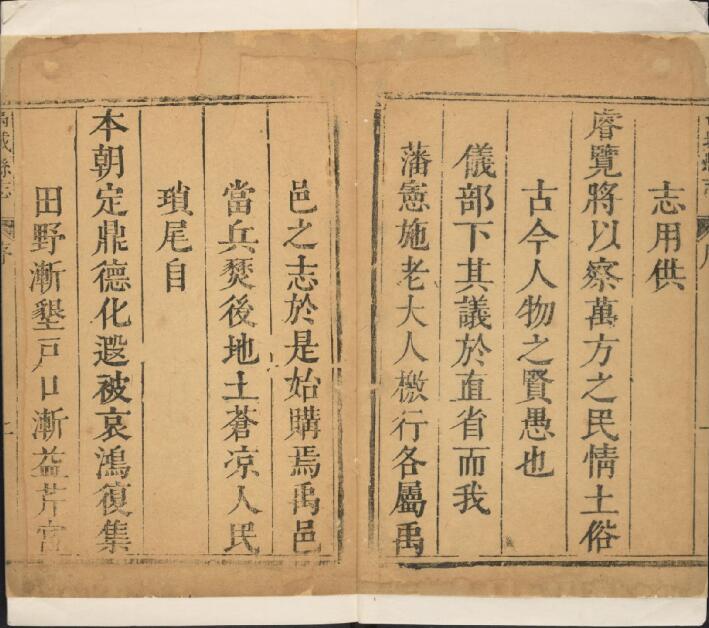 志用供
睿覽將以察萬方之民情土俗
古今人物之賢愚也
儀部下其議於直省而我
藩憲施老大人檄行各屬禹
邑之志於是始購焉禹邑
當兵燹後地土蒼凉人民
瑣尾自
本朝定鼎德化遐被哀鴻復集
田野漸墾戸口漸益芹宮
城縣志
序